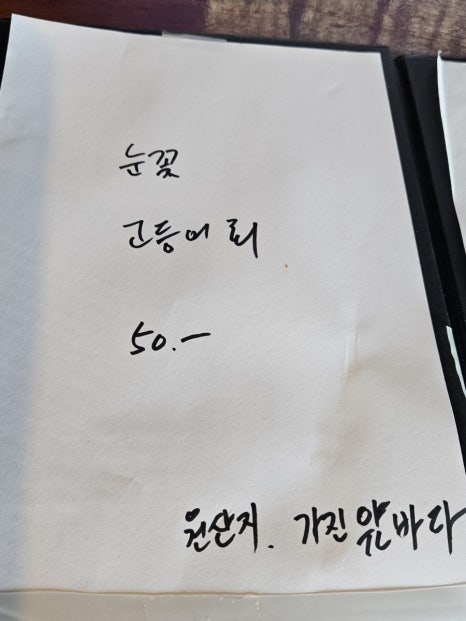 눈꽃
고등어 회
50.-
원산지. 가진 앞바다